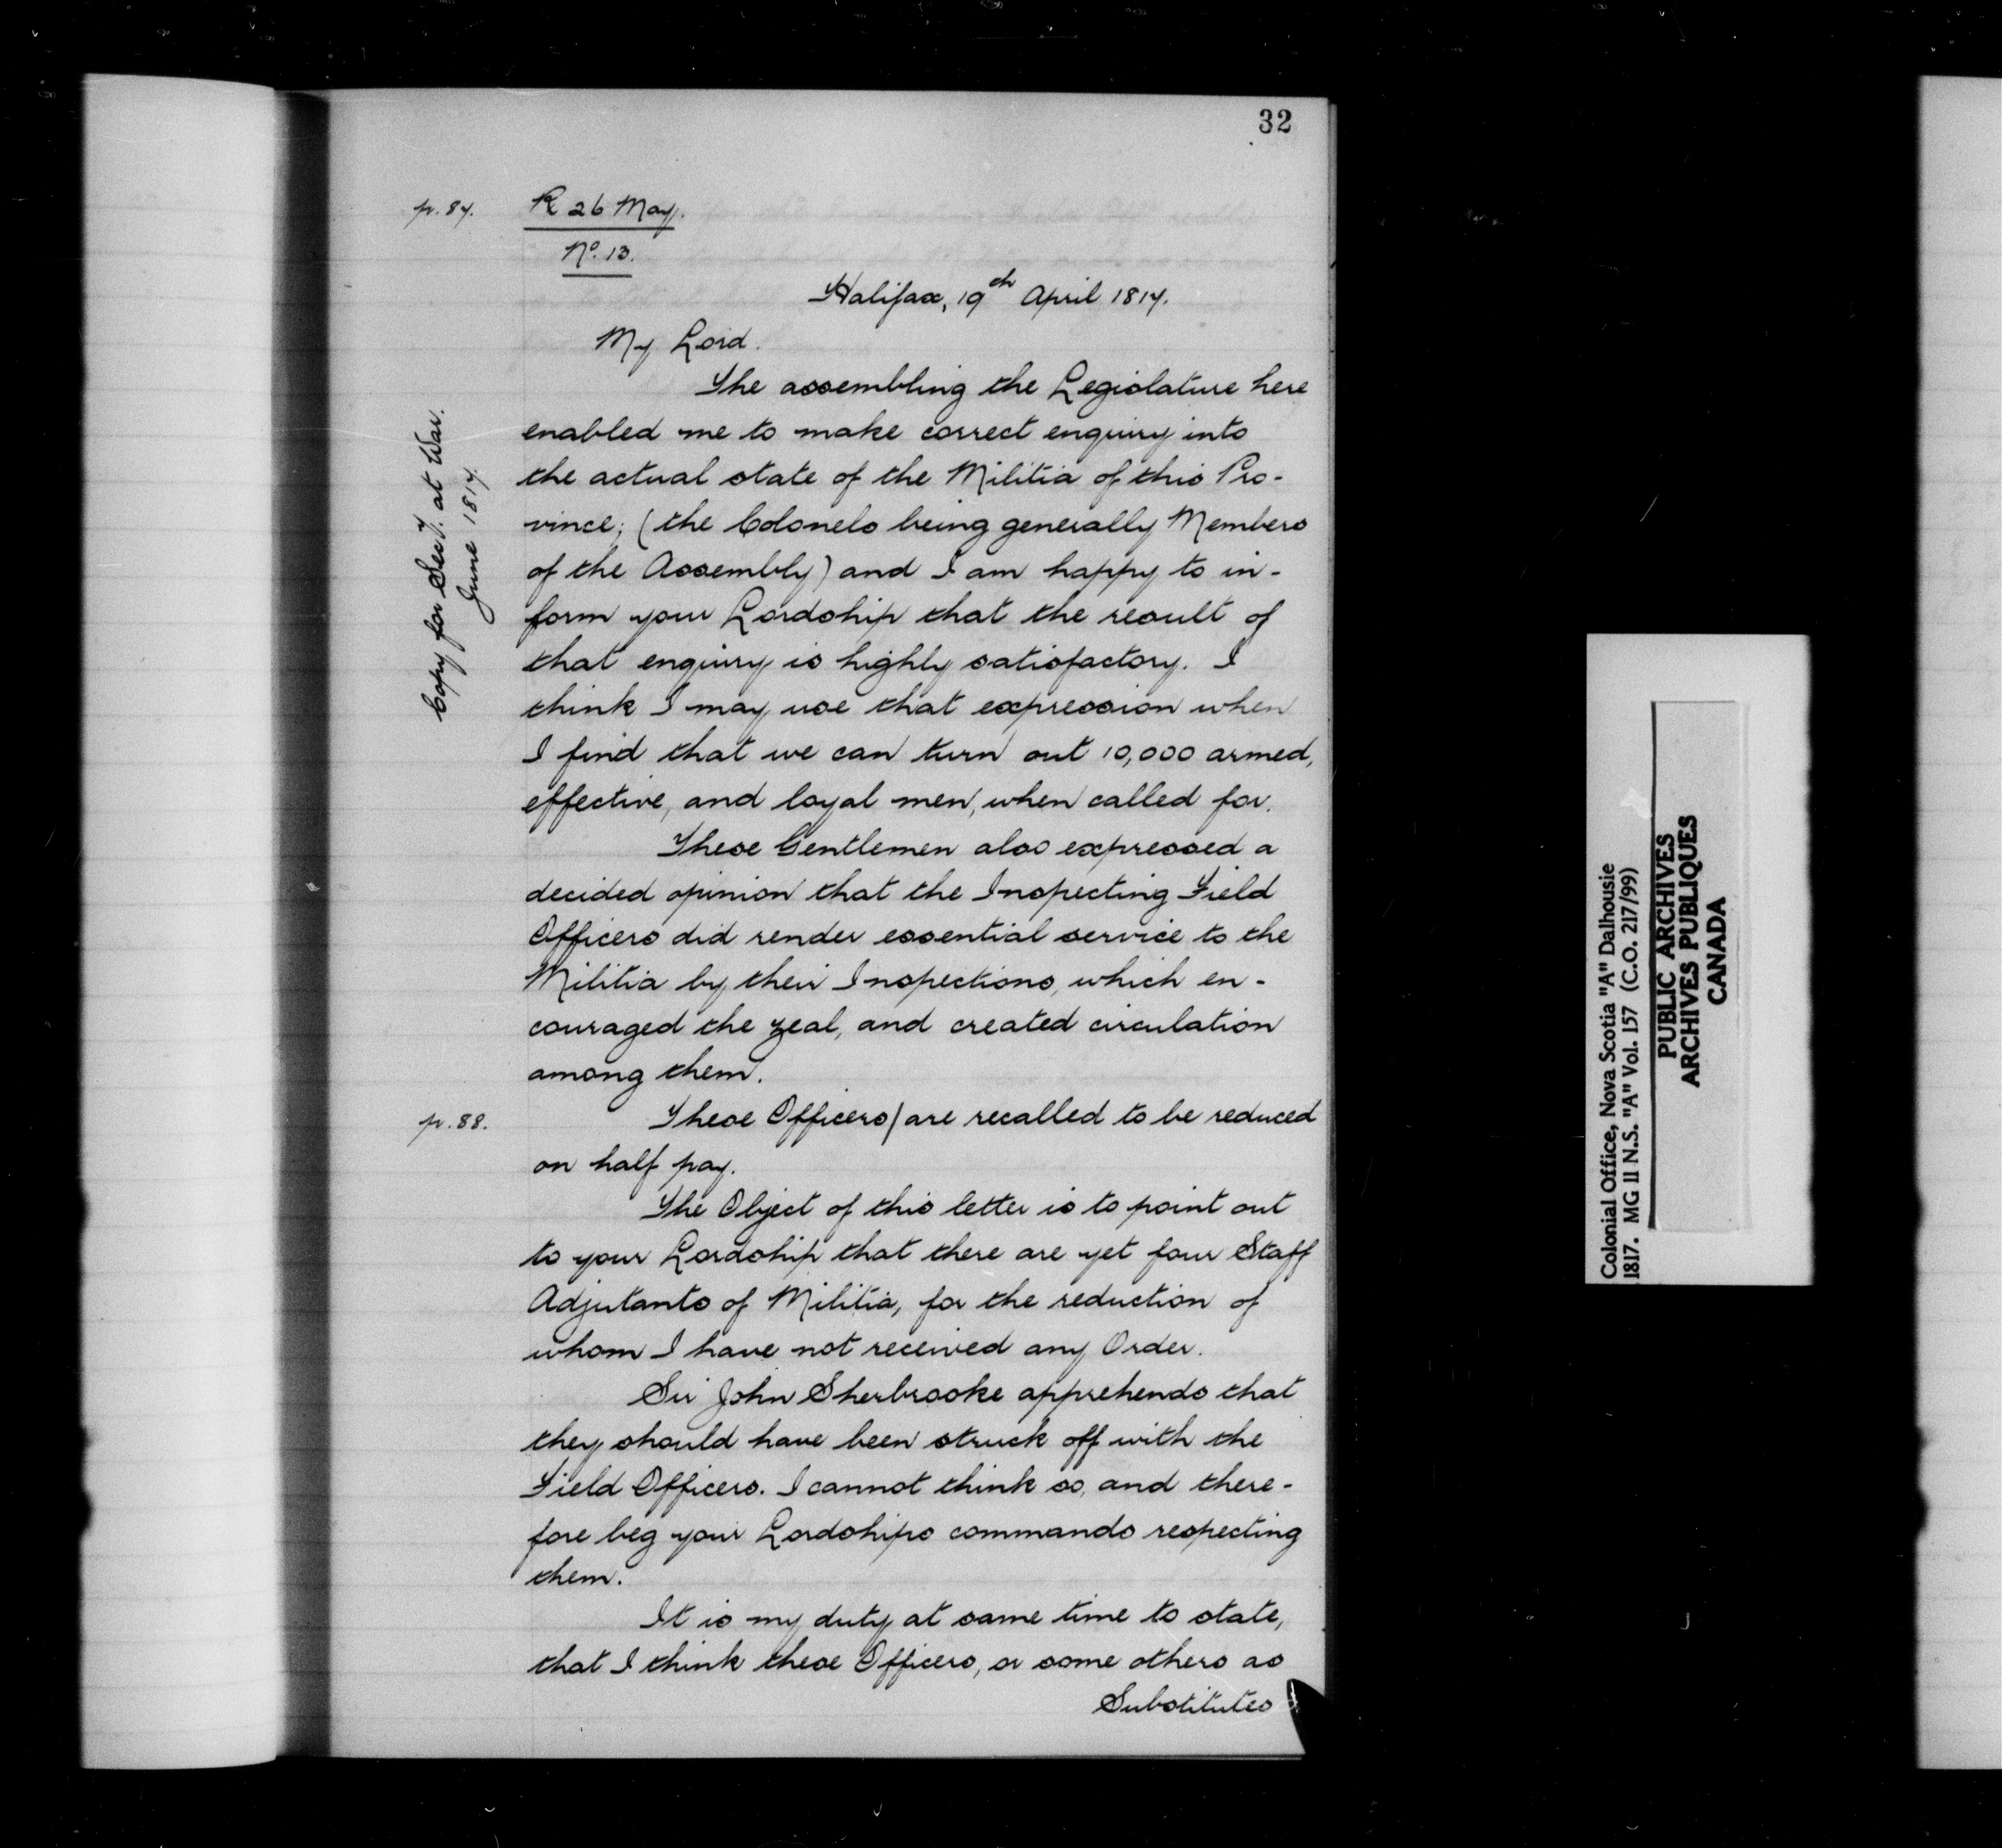 32
p. 87.
R 26 May.
No. 13.
Halifax, 19th April 1817.
My Lord.
The assembling the Legislature here
enabled me to make correct enquiry into
the actual state of the Militia of this Pro-
vince; (the Colonels being generally Members
of the Assembly) and I am happy to in-
form your Lordship that the result of
that enquiry is highly satisfactory. I
think I may use that expression when
I find that we can turn out 10,000 armed,
effective, and loyal men, when called for.
These Gentlemen also expressed a
decided opinion that the Inspecting Field
Officers did render essential service to the
Militia by their Inspections, which en-
couraged the zeal, and created circulation
among them.
p. 88.
These Officers/are recalled to be reduced
on half pay.
The Object of this letter is to point out
to your Lordship that there are yet four Staff
Adjutants of Militia, for the reduction of
whom I have not received any Order.
Sir John Sherbrooke apprehends that
they should have been struck off with the
Field Officers. I cannot think so, and there-
fore beg your Lordships commands respecting
them.
It is my duty at same time to state,
that I think these Officers, or some others as
Substitutes
Copy for Secy. at War.
June 1817.
Colonial Office, Nova Scotia "A" Dalhousie
1817. MG 11 N.S. "A" Vol. 157 (C.O. 217/99)
PUBLIC ARCHIVES
ARCHIVES PUBLIQUES
CANADA